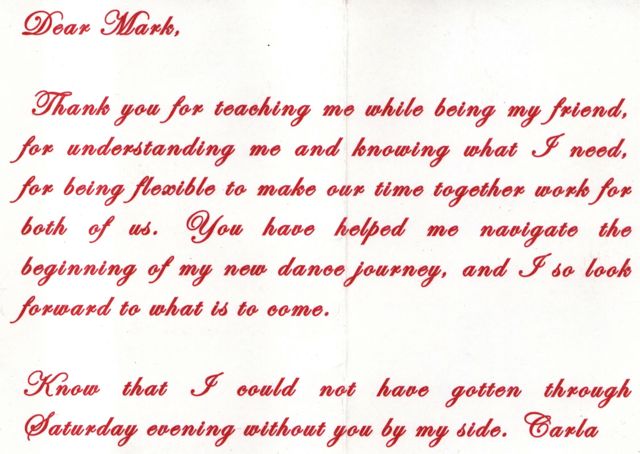 Dear Mark,
Thank you for teaching me while being my friend,
for understanding me and knowing what I need,
for being flexible to make our time together work for
both of us. You have helped me navigate the
beginning of my new dance journey, and I so look
forward to what is to come.
Know that I could not have gotten through
Saturday evening without you by my side. Carla